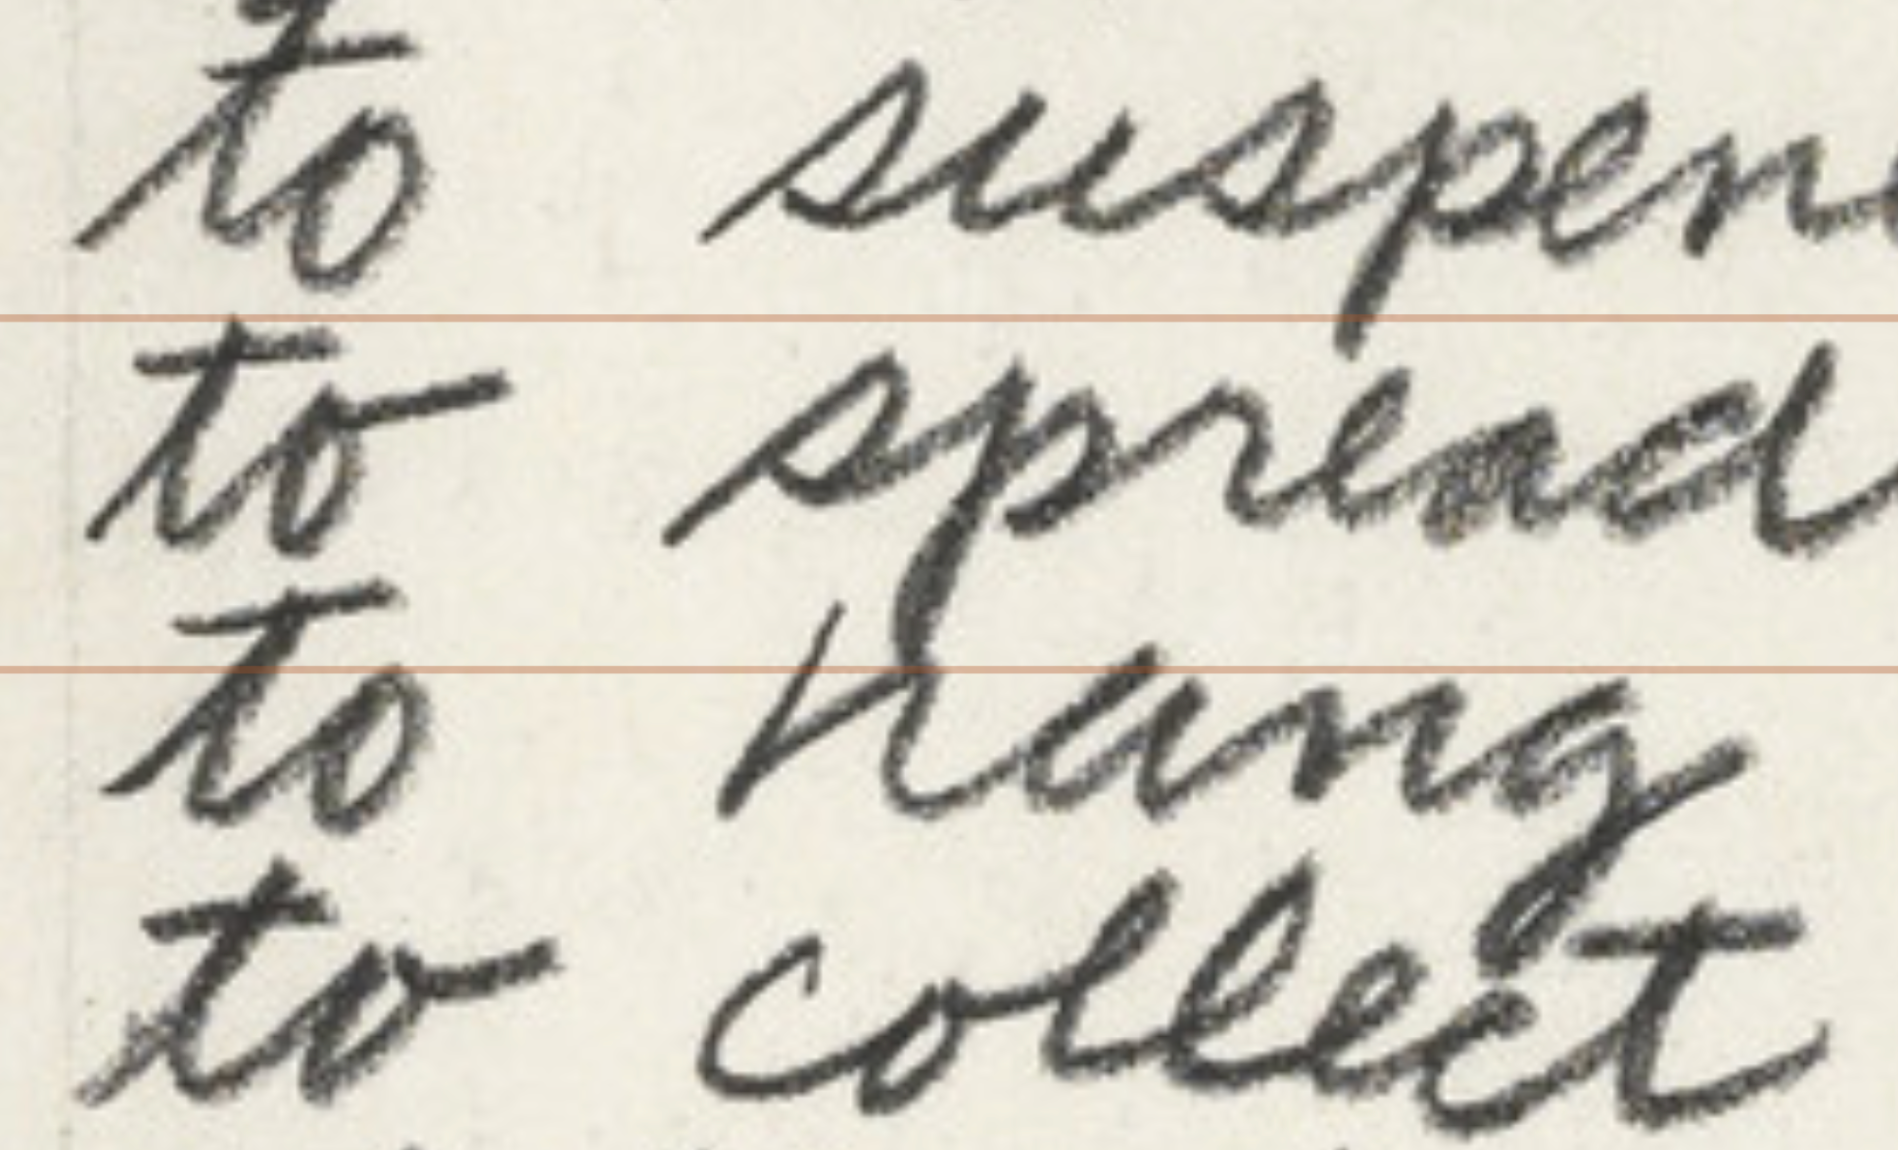 to suspen
to spread
to hang
to collect